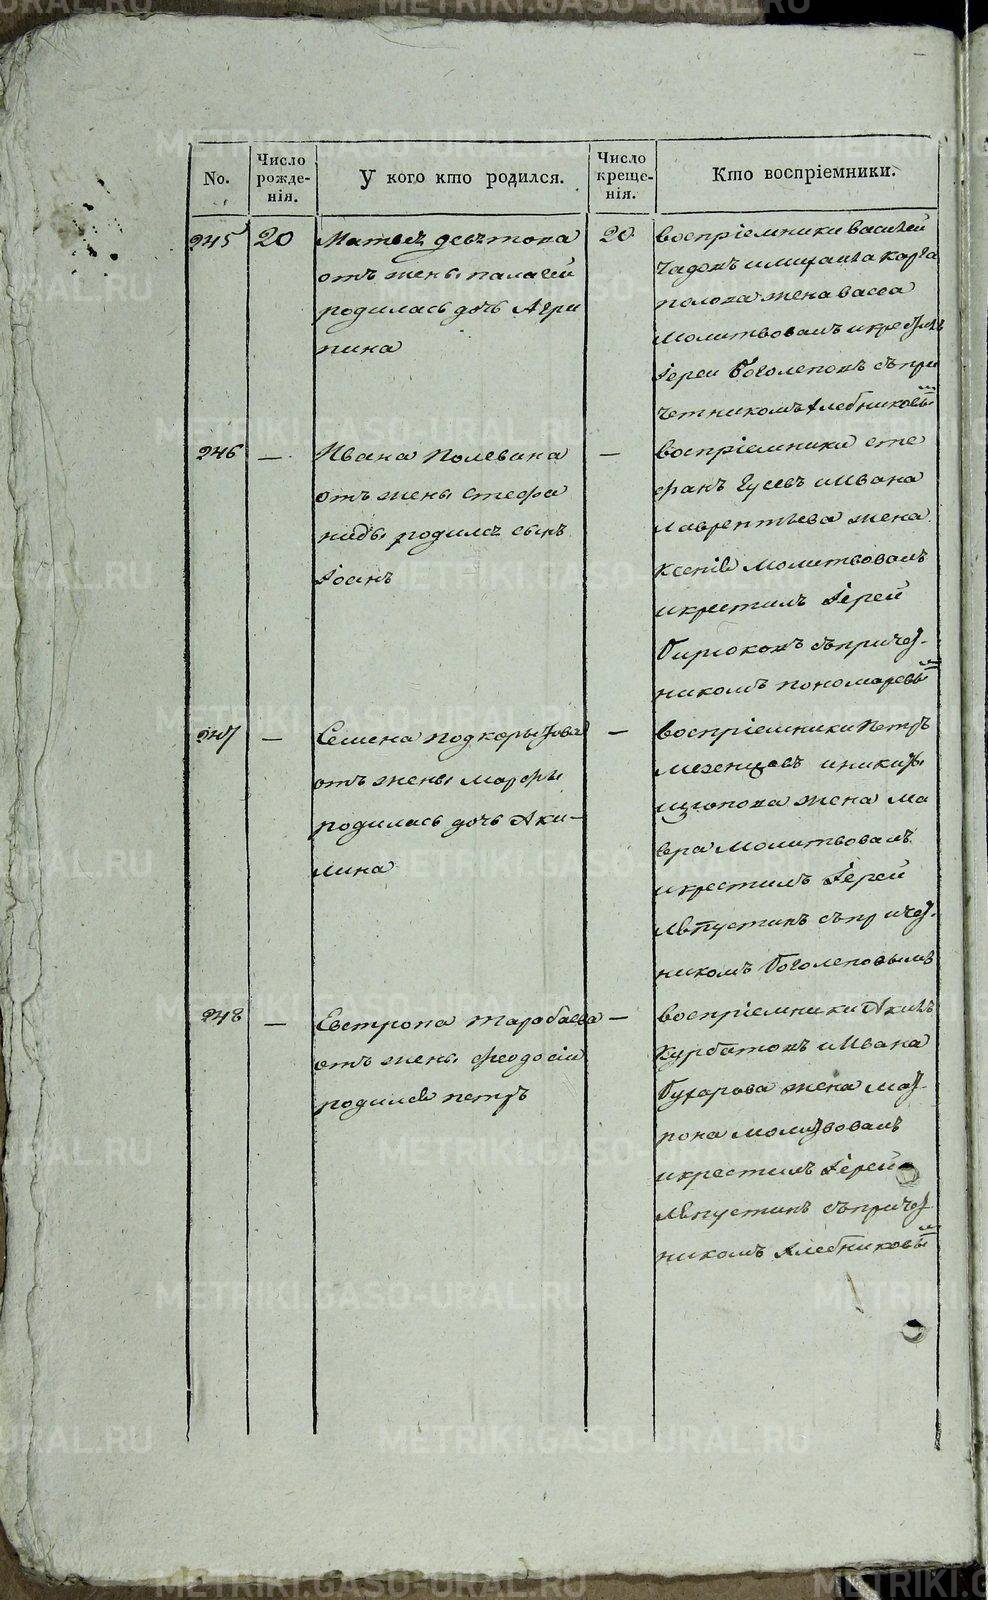 No.
Число рожде- нія.
У кого кто родился.
Число креще- нія.
Кто воспріемники.
245
20
Матвея девятова
отъ жены палагеи
родилась дочь Агри
пина
20
воспріемники Василей
Чадовъ и михаила карга
полова жена васса
молитвовалъ и крестилъ
Іереи Боголеповъ съ при
четникомъ хлебниковы м
246
—
Ивана Полевина
отъ жены стефа
ниды родился сынъ
Іоанъ
—
воспріемники сте
фанъ Гусевъ и Ивана
лаврентьева жена
ксенія молитвовалъ
и крестилъ Іерей
Бирюковъ съ причет-
никомъ пономаревы м
247
—
Семена подкорытова
отъ жены марфы
родилась дочь Аки-
лина
—
воспріемники Петръ
мезенцовъ и никиты
жена ма
вра молитвовалъ
и крестилъ Іерей
съ причет-
никомъ Боголеповымъ
248
—
Евстропа тарабаева
отъ жены феодосіи
родился петръ
—
воспріемники
Курбатовъ и Ивана
Бухарова жена мат-
рона молитвовалъ
и крестилъ Іерей
съ причет-
никомъ хлебниковы м
METRIKI.GASO-URAL.RU